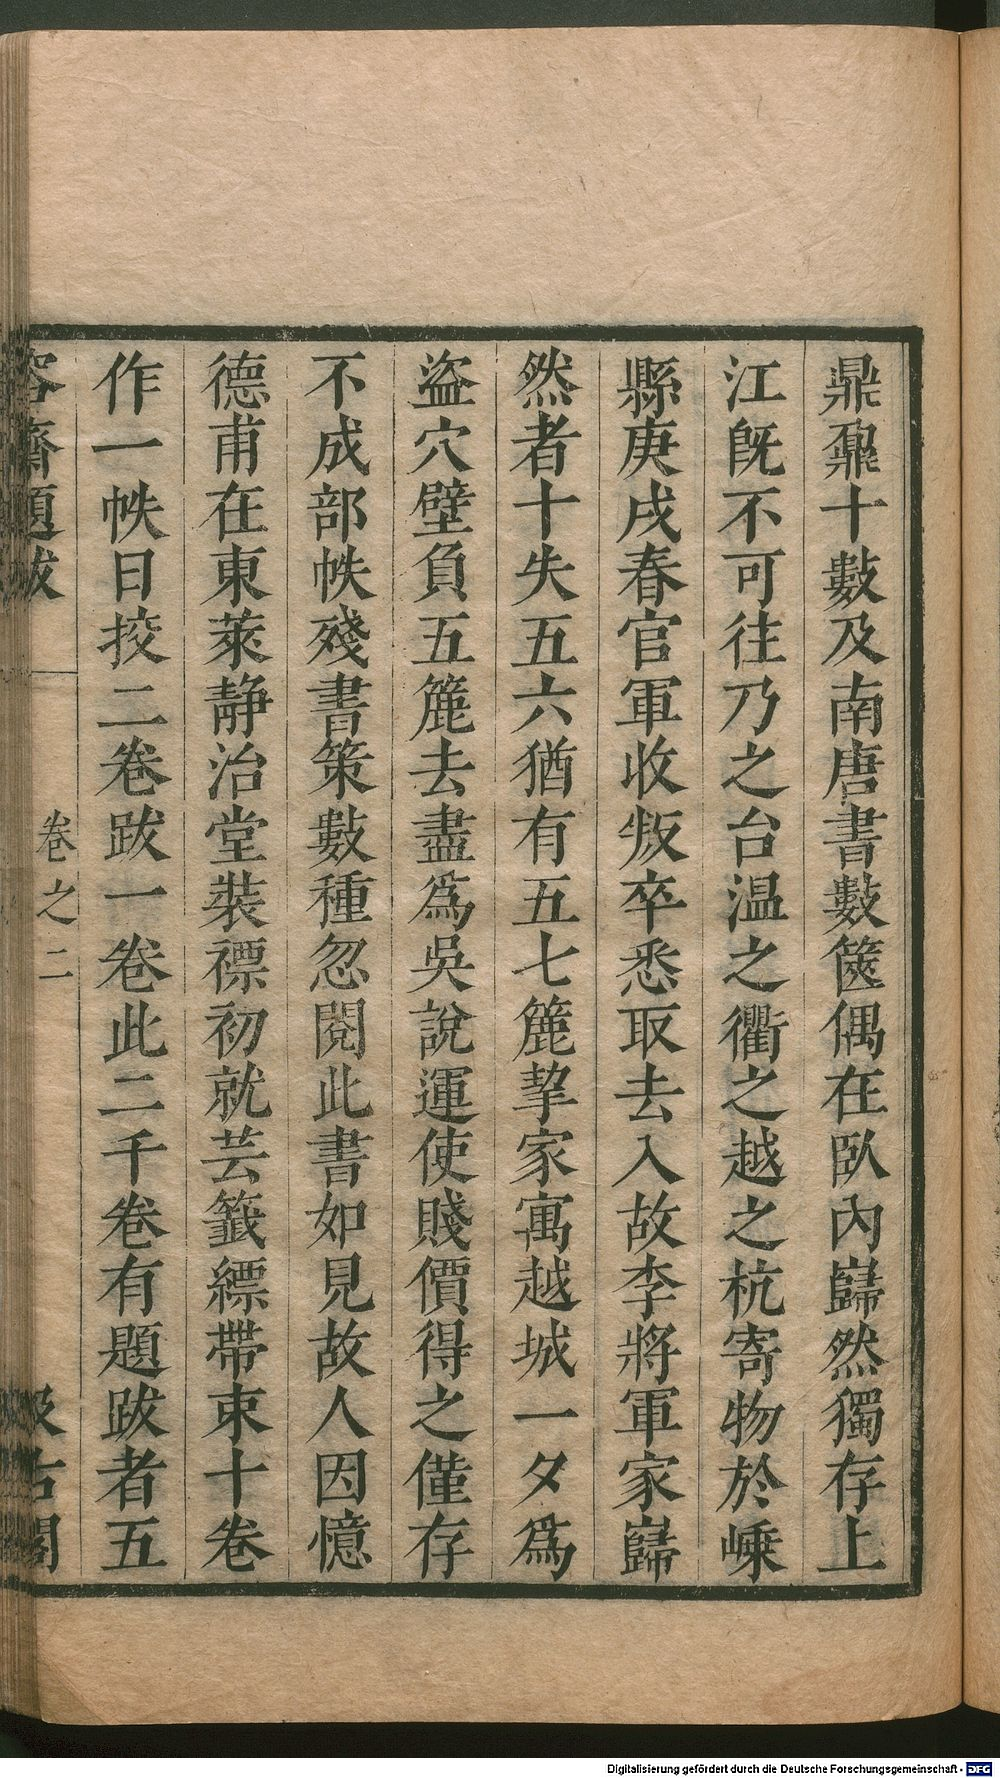 鼎鼐十數及南唐書數篋偶在臥內巋然獨存上
江旣不可往乃之台温之衢之越之杭寄物於嵊
縣庚戌春官軍收叛卒悉取去入故李將軍家巋
然者十失五六猶有五七簏挈家寓越城一夕爲
盜穴壁負五簏去盡爲吳說運使賤價得之僅存
不成部帙殘書策數種忽閱此書如見故人因憶
德甫在東萊靜治堂裝褾初就芸籤縹帶束十卷
作一帙日挍二卷跋一卷此二千卷有題跋者五
容齋題跋
卷之二
汲古閣
Digitalisierung gefördert durch die Deutsche Forschungsgemeinschaft - DFG